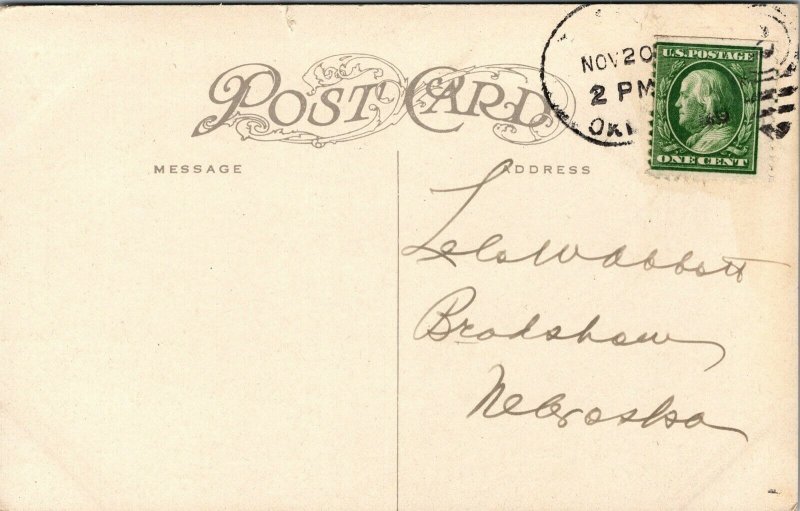 POST CARD
NOV 20
2 PM
OKL
U.S. POSTAGE
ONE CENT
MESSAGE
ADDRESS
Lela W Abbott
Bradshaw
Nebraska